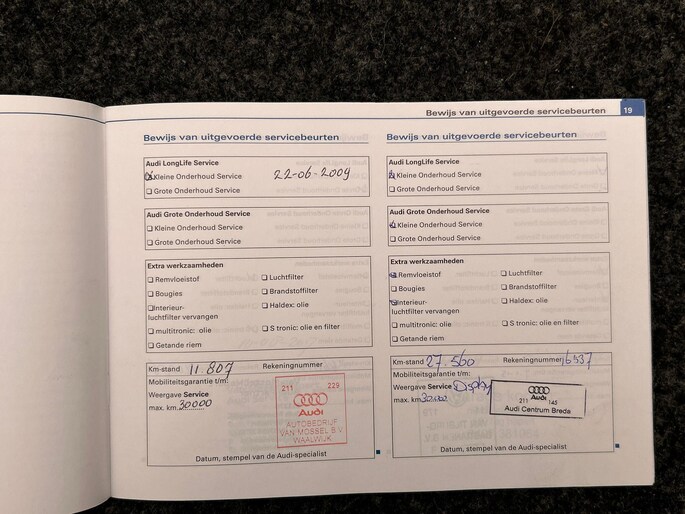 Bewijs van uitgevoerde servicebeurten 19
Bewijs van uitgevoerde servicebeurten
Audi LongLife Service
Kleine Onderhoud Service 22-06-2009
Grote Onderhoud Service
Audi Grote Onderhoud Service
Kleine Onderhoud Service
Grote Onderhoud Service
Extra werkzaamheden
Remvloeistof
Bougies
Interieur-
luchtfilter vervangen
multitronic: olie
Getande riem
Luchtfilter
Brandstoffilter
Haldex: olie
S tronic: olie en filter
Km-stand 11.807 Rekeningnummer
Mobiliteitsgarantie t/m:
Weergave Service
max. km 30000
211 229
Audi
AUTOBEDRIJF
VAN MOSSEL B.V.
WAALWIJK
Datum, stempel van de Audi-specialist
Bewijs van uitgevoerde servicebeurten
Audi LongLife Service
Kleine Onderhoud Service
Grote Onderhoud Service
Audi Grote Onderhoud Service
Kleine Onderhoud Service
Grote Onderhoud Service
Extra werkzaamheden
Remvloeistof
Bougies
Interieur-
luchtfilter vervangen
multitronic: olie
Getande riem
Luchtfilter
Brandstoffilter
Haldex: olie
S tronic: olie en filter
Km-stand 27.560 Rekeningnummer 16537
Mobiliteitsgarantie t/m:
Weergave Service Display
max. km
Audi
211 145
Audi Centrum Breda
Datum, stempel van de Audi-specialist